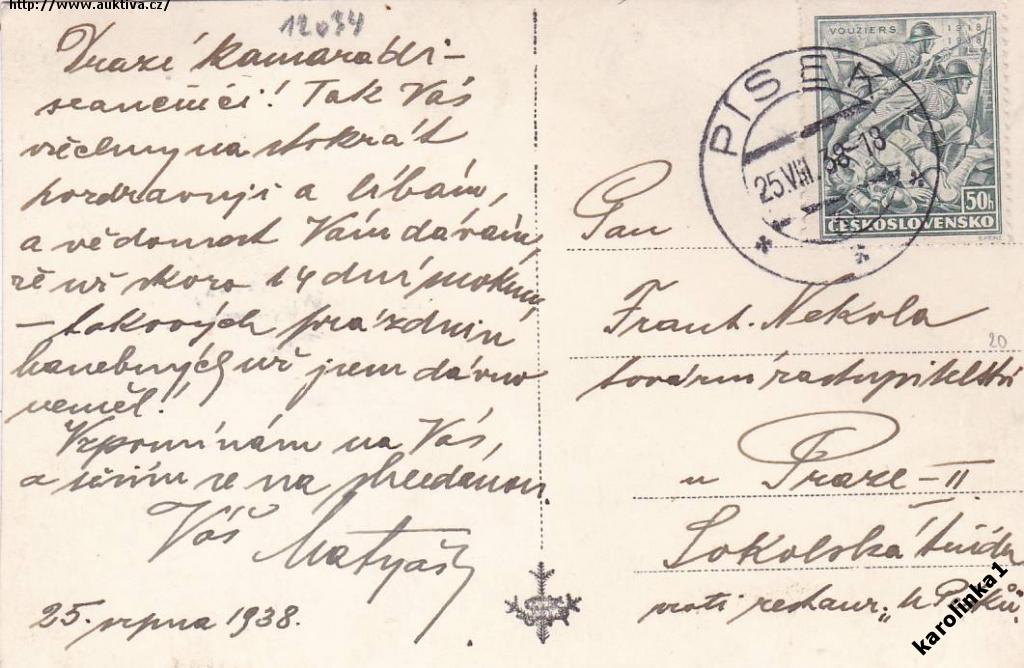 http://www.auktiva.cz/
12034
Drazí kamarádi-
seančníci! Tak Vás
všechny na stokrát
pozdravuji a líbám,
a vědomost Vám dávám,
že už skoro 14 dní moknu,
– takových prázdnin
hanebných už jsem dávno
neměl!
Vzpomínám na Vás,
a těším se na shledanou.
Váš Matyáš
25. srpna 1938.
VOUZIERS 1918 1938
50h
ČESKOSLOVENSKO
PÍSEK
25.VIII.38-13
Pan
Frant. Nekola
20
tovární zastupitelství
v Praze – II
Sokolská třída
proti restaur. „U
karolinka1